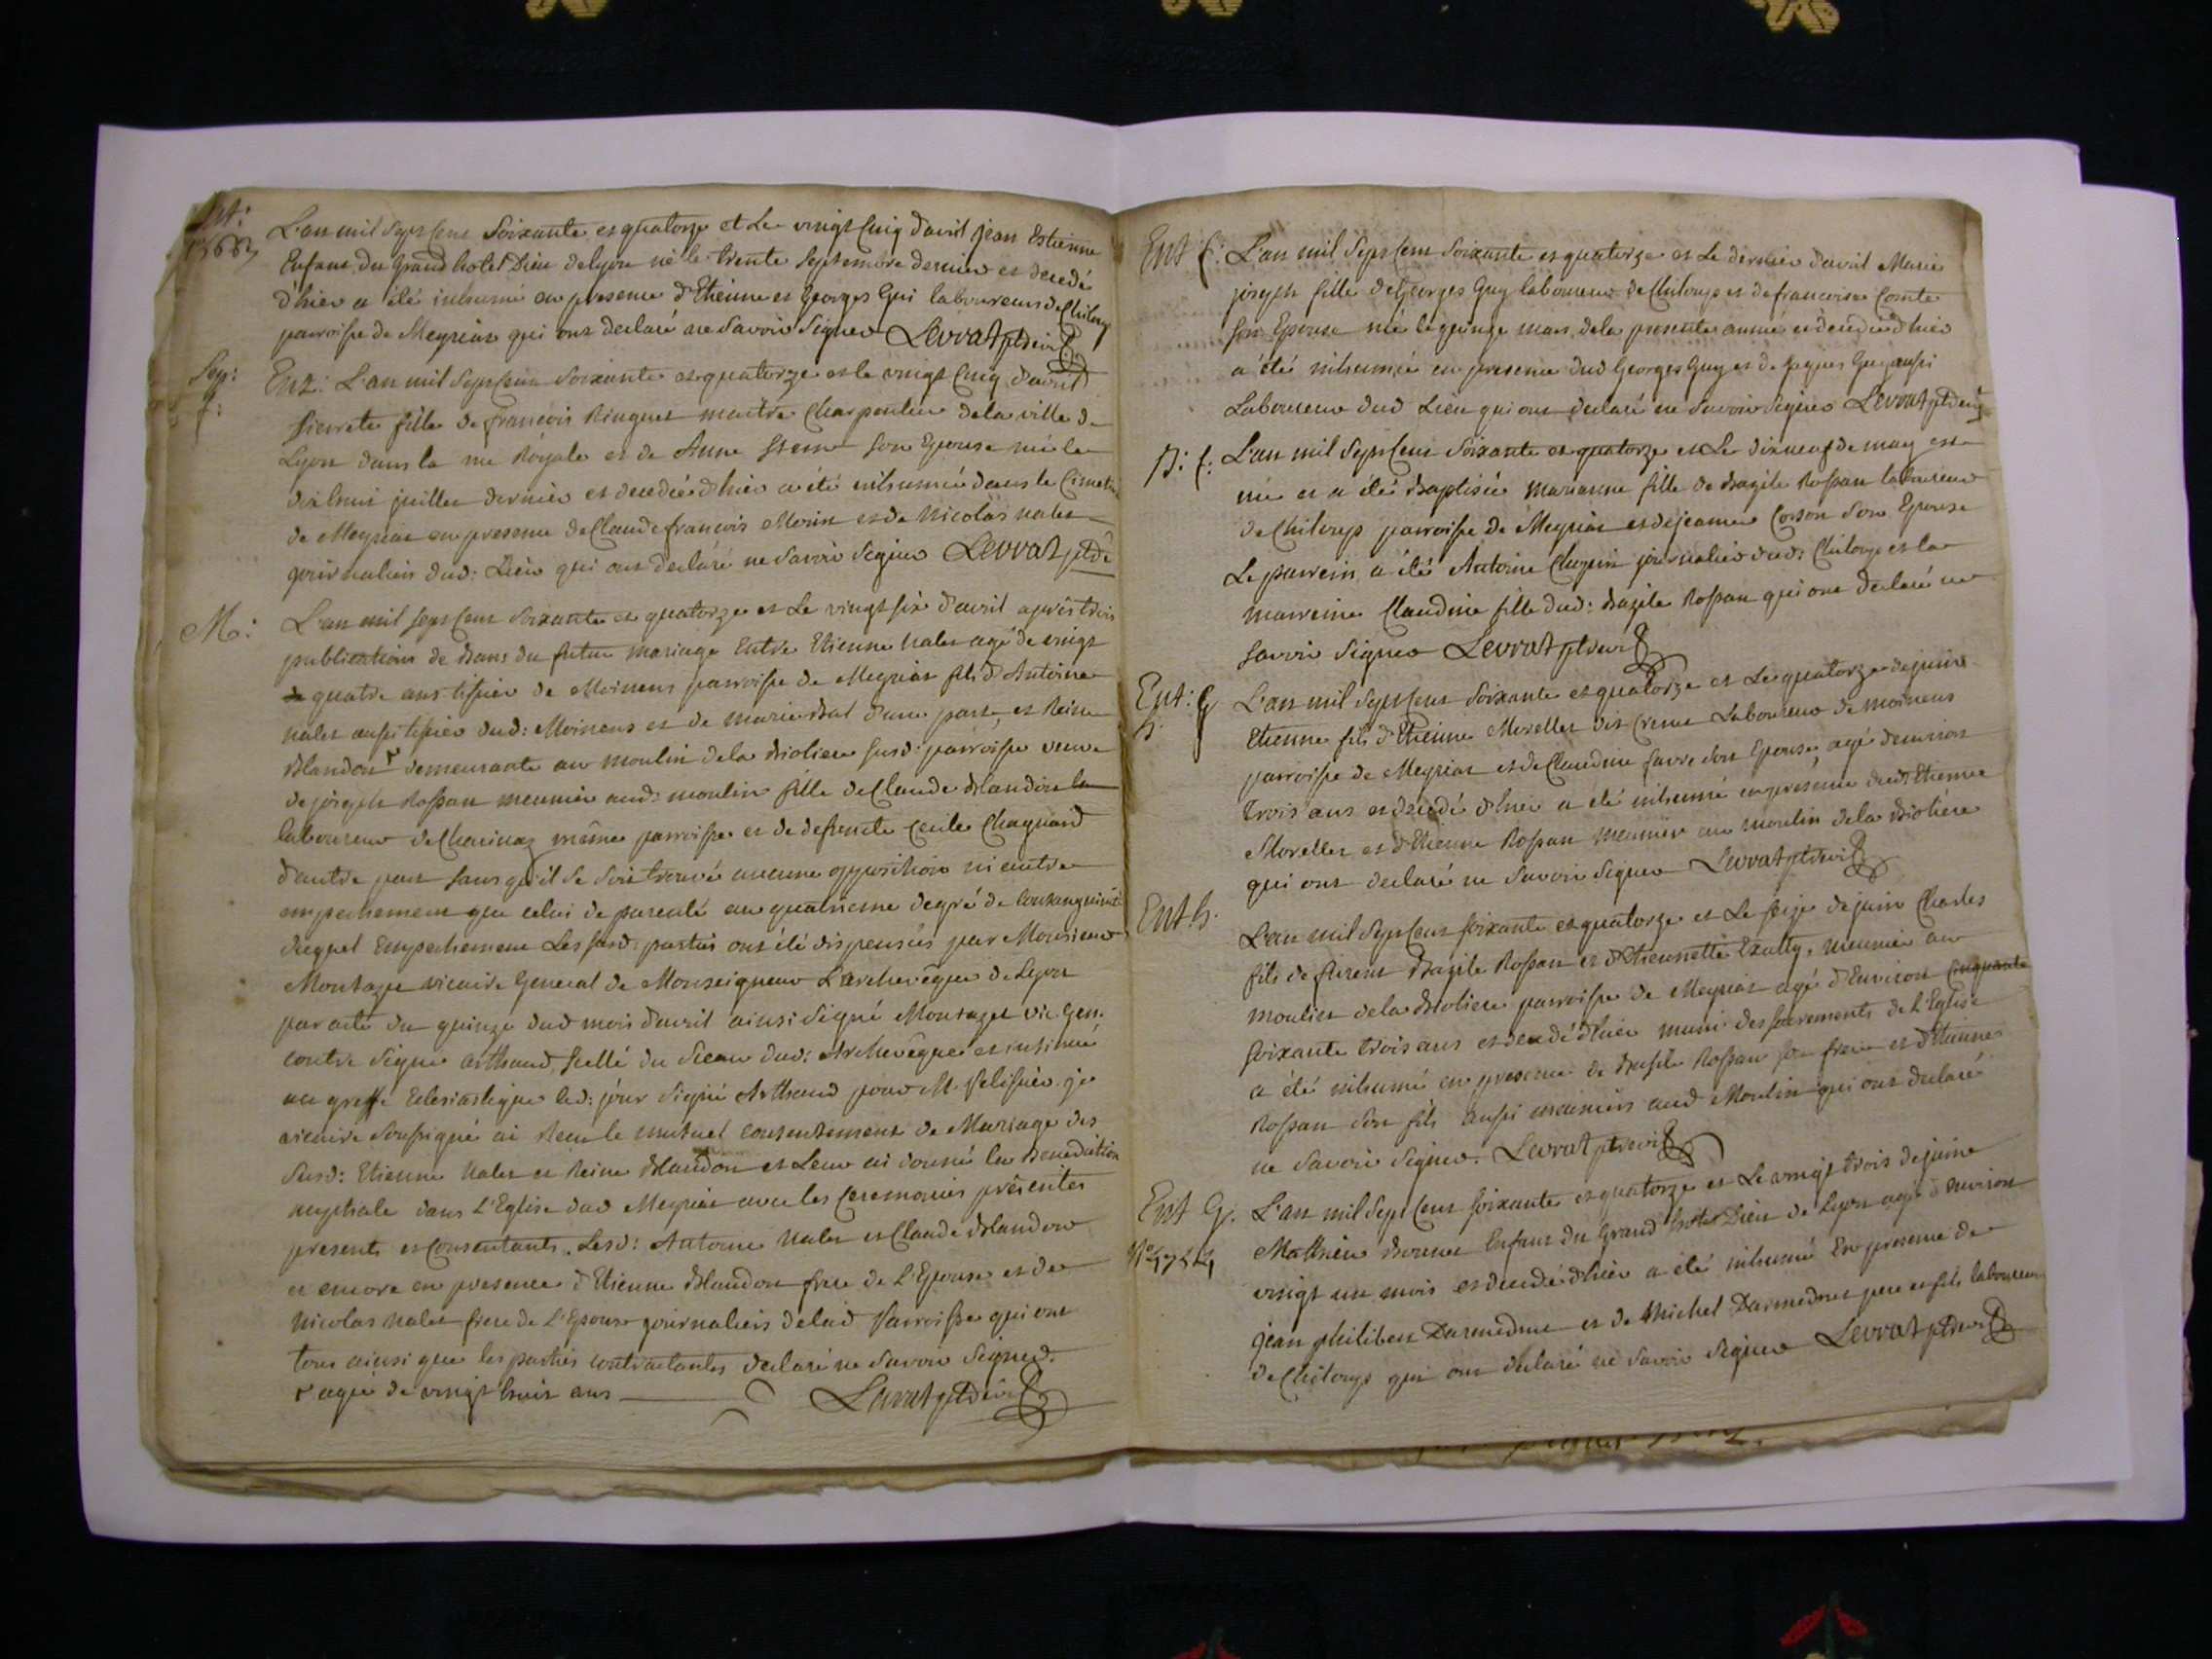 Ent:
L'an mil Sept Cent Soixante et quatorze et Le vingt Cinq d'avril jean Estienne
Enfant du Grand hotel Dieu de Lyon né le trente Septembre dernier et decedé
d'hier a été inhumé en presence d'Etienne et Georges Gui laboureurs de Chiloup
parroisse de Meyriat qui ont declaré ne Savoir Signer Levrat ptre vic
Sep:
f:
Ent: L'an mil Sept Cent Soixante et quatorze et le vingt Cinq d'avril
pierrete fille de francois Ringuet maitre Charpentier de la ville de
Lyon dans la rue Royale et de Anne Son Epouse née le
dix huit juillet dernier et decedée d'hier a été inhumée dans le Cimetiere
de Meyriat en presence de Claude francois Morin et de Nicolas nalet
journaliers dud: Lieu qui ont declaré ne Savoir Signer Levrat ptre
M:
L'an mil Sept Cent Soixante et quatorze et Le vingt Six d'avril après trois
publications de Bans du futur mariage Entre Etienne nalet agé de vingt
quatre ans tissier de Moinens parroisse de Meyriat fils d'Antoine
nalet aussi tissier dud: Moinens et de marie Bal d'une part, et Reine
Blandon demeurante au moulin de la Bioliere susd: parroisse veuve
de joseph Rossan meunier aud: moulin fille de Claude Blandon
laboureur de Charinaz même parroisse et de defuncte Cecile Chagnard
d'autre part sans qu'il Se Soit trouvé aucune opposition ni autre
empechement que celui de parenté au quatrieme degré de Consanguinité
duquel Empechement Les susd: parties ont été dispensées par Monsieur
Montazet vicaire General de Monseigneur L'archevêque de Lyon
par acte du quinze dud mois d'avril ainsi Signé Montazet vic. gen.
contre Signé arthaud, Scellé du Sceau dud: Archevêque et insinué
au greffe Eclesiastique led: jour Signé Arthaud pour M. je
vicaire Soussigné ai Recu le mutuel consentement de Mariage des
Susd: Etienne nalet et Reine Blandon et Leur ai donné la Benediction
nuptiale dans L'Eglise dud Meyriat avec les Ceremonies prescrites
presents et Consentants Lesd: Antoine nalet et Claude Blandon
et encore en presence d'Etienne Blandon frere de L'Epouse et de
Nicolas nalet frere de L'Epoux journaliers de lad Parroisse qui ont
tous ainsi que les parties contractantes declaré ne Savoir Signer.
agée de vingt huit ans Levrat ptre vic
Ent f: L'an mil Sept Cent Soixante et quatorze et Le dernier d'avril Marie
joseph fille de Georges Guy laboureur de Chiloup et de francoise Comte
Son Epouse née le quinze mars de la presente année et decedée d'hier
a été inhumée en presence dud Georges Guy et de Guy aussi
Laboureur dud Lieu qui ont declaré ne Savoir Signer Levrat ptre vic
B: f: L'an mil Sept Cent Soixante et quatorze et Le dixneuf de may est
née et a été Baptisée marianne fille de Bazile Rossan laboureur
de Chiloup parroisse de Meyriat et de jeanne Corson Son Epouse
Le parrein a été Antoine Chapuis journalier dud: Chiloup et la
marreine Claudine fille dud: Bazile Rossan qui ont declaré ne
Savoir Signer Levrat ptre vic
Ent: G
L'an mil Sept Cent Soixante et quatorze et Le quatorze de juin
Etienne fils d'Etienne Morellet dit Laboureur de moinens
parroisse de Meyriat et de Claudine favre Son Epouse, agé d'environ
trois ans et decedé d'hier a été inhumé en presence dud: Etienne
Morellet et d'Etienne Rossan meunier au moulin de la Bioliere
qui ont declaré ne Savoir Signer Levrat ptre vic
Ent h.
L'an mil Sept Cent Soixante et quatorze et Le Seize de juin Charles
fils de Bazile Rossan et d'Etiennette meunier au
moulin de la Bioliere parroisse de Meyriat agé d'Environ cinquante
Soixante trois ans et decedé d'hier muni des Sacrements de L'Eglise
a été inhumé en presence de Basile Rossan Son frere et d'Etienne
Rossan Son fils aussi meuniers aud Moulin qui ont declaré
ne Savoir Signer. Levrat ptre vic
Ent G. L'an mil Sept Cent Soixante et quatorze et Le vingt trois de juin
Matthieu Bonnet Enfant du Grand hotel Dieu de Lyon agé d'environ
vingt un mois et decedé d'hier a été inhumé En presence de
jean philibert et de Michel pere et fils laboureurs
de Chiloup qui ont declaré ne Savoir Signer Levrat ptre vic